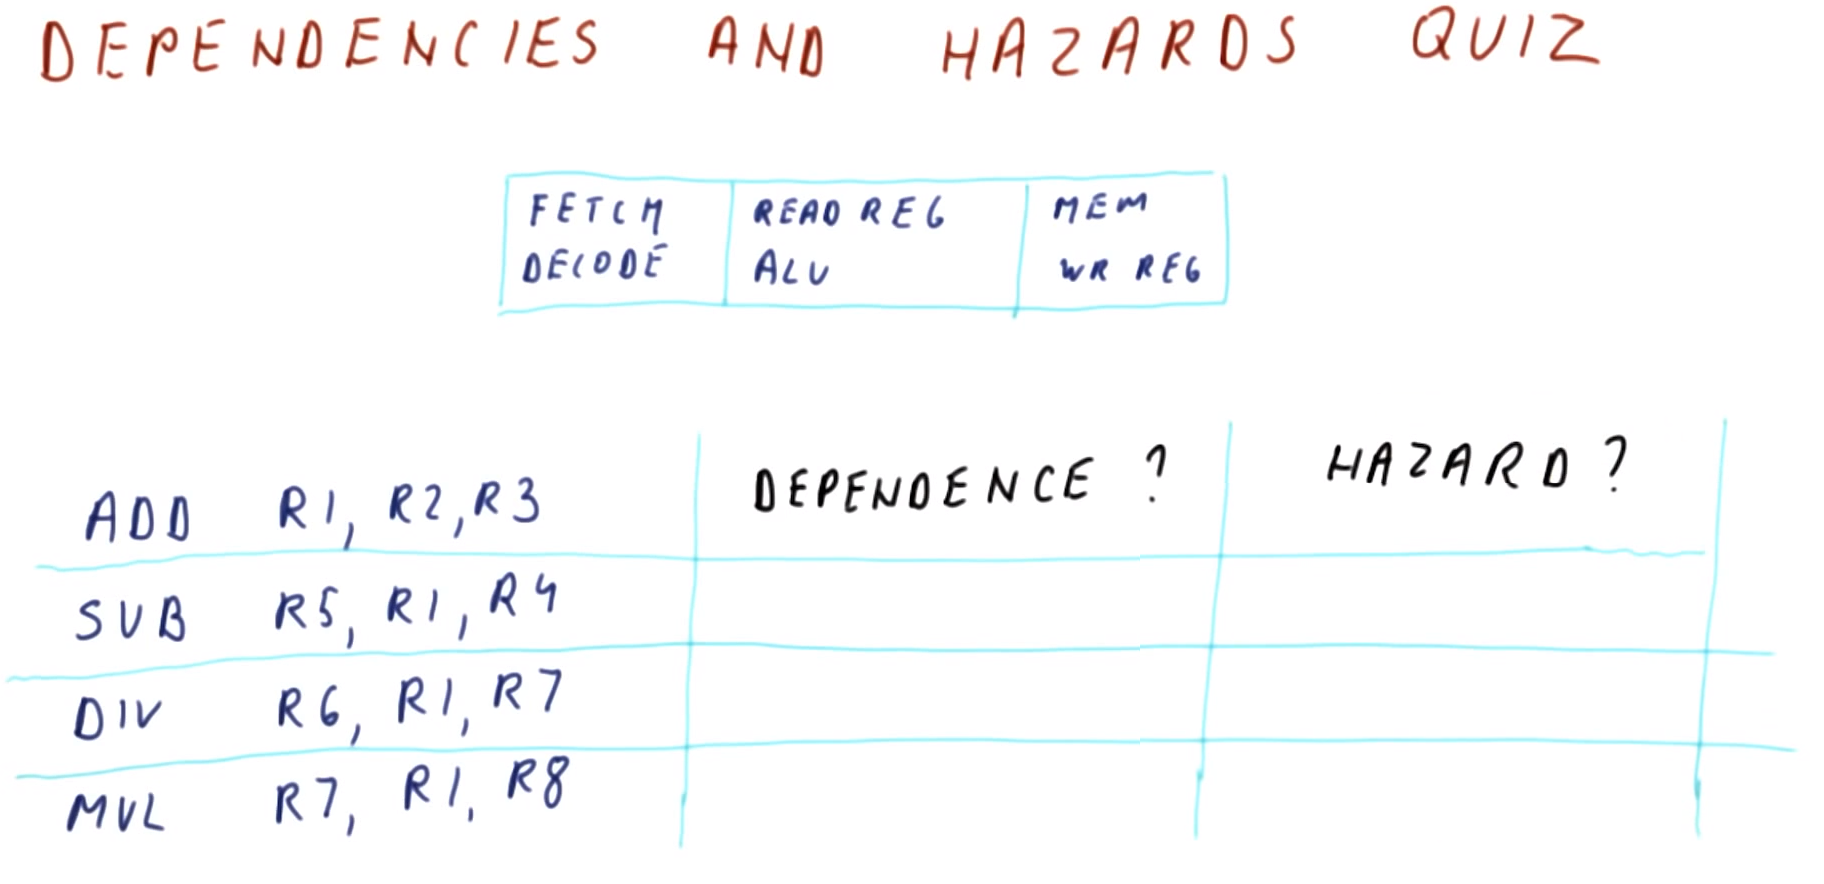 DEPENDENCIES AND HAZARDS QUIZ
FETCH READ REG MEM
DECODE ALU WR REG
DEPENDENCE ? HAZARD ?
ADD R1, R2, R3
SUB R5, R1, R4
DIV R6, R1, R7
MUL R7, R1, R8